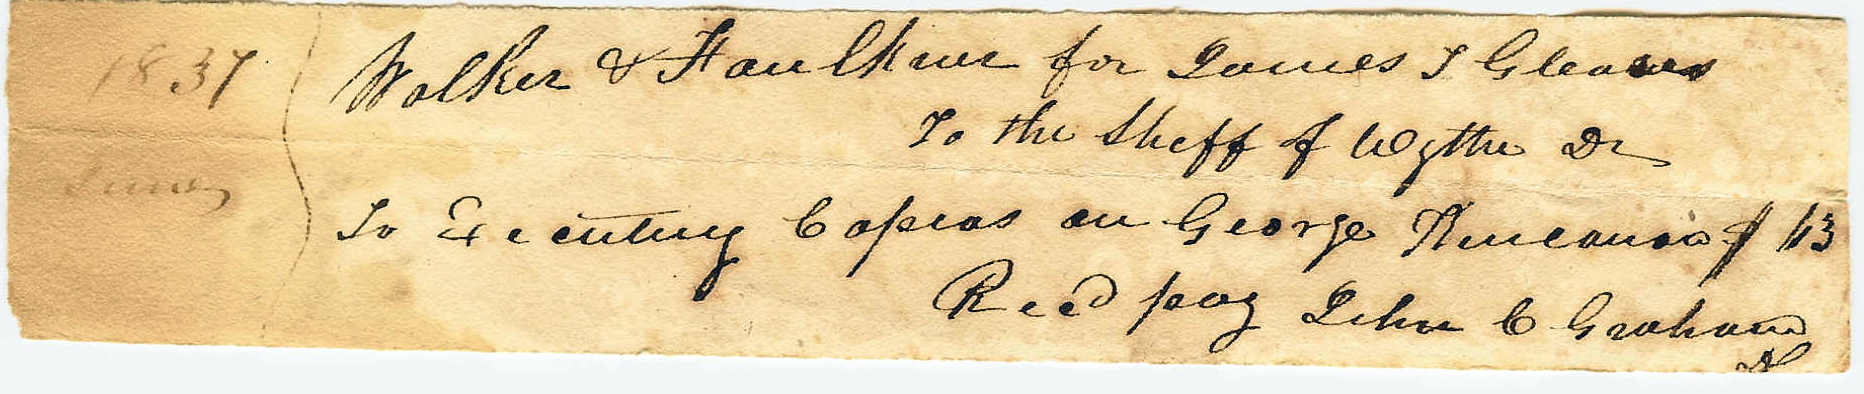 1837
June
Walker & Faulkner for James T Gleaves
To the Sheff of Wythe Dr
To Executing Capias on George Kincanon $ 63
Recd pay John C Graham